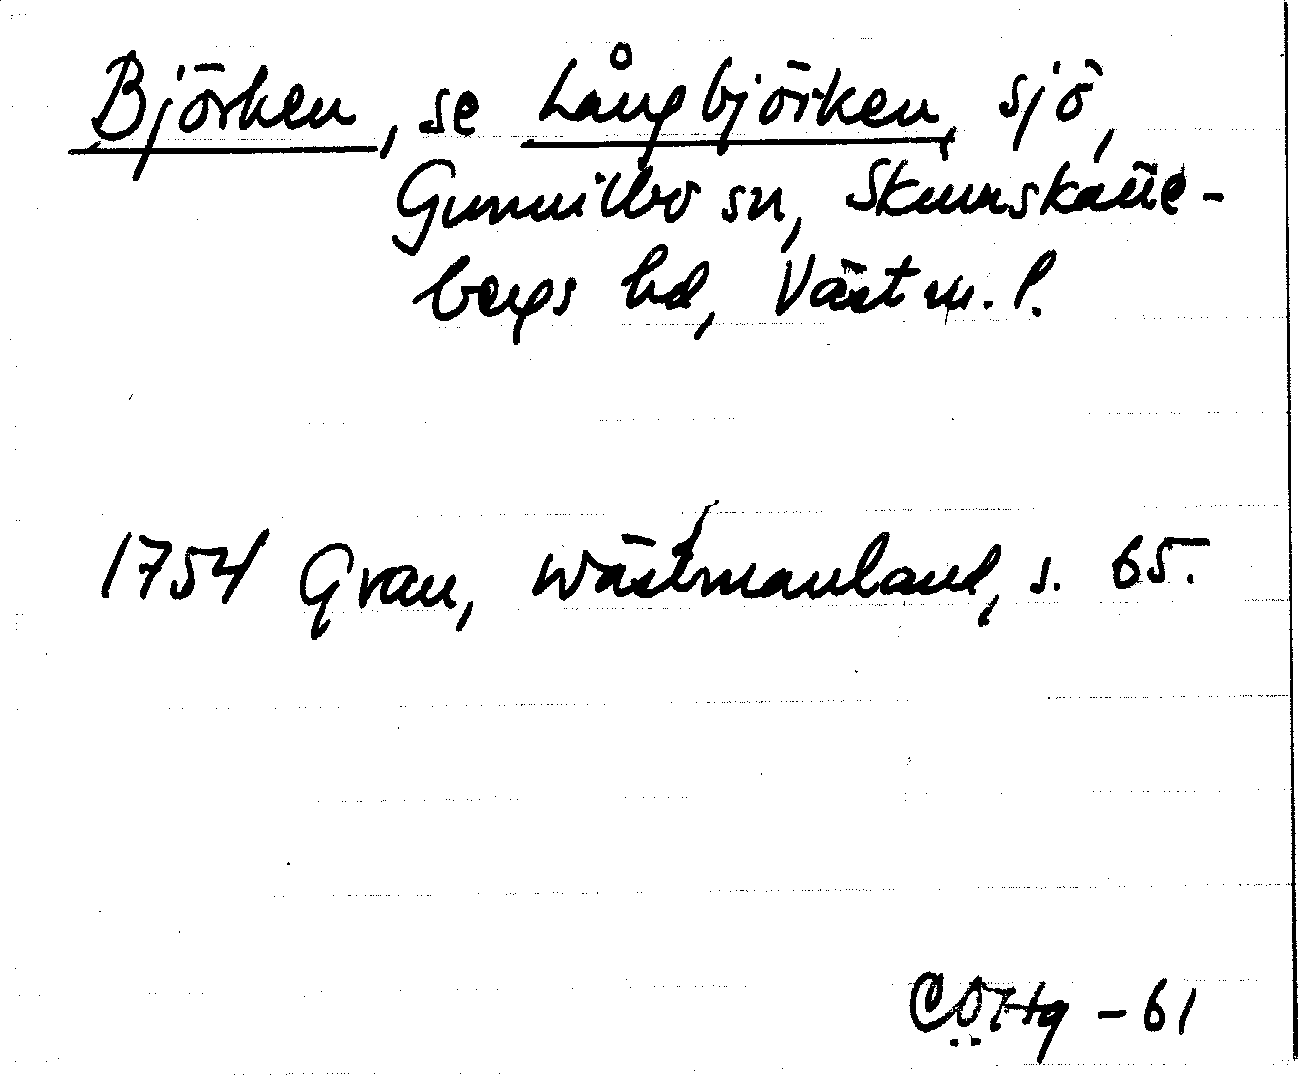 Björken, se Långbjörken, sjö,
Gunnilbo sn, Skinnskatte-
bergs hd, Västm. l.
1754 Grau, Wästmanland, s. 65.
-61